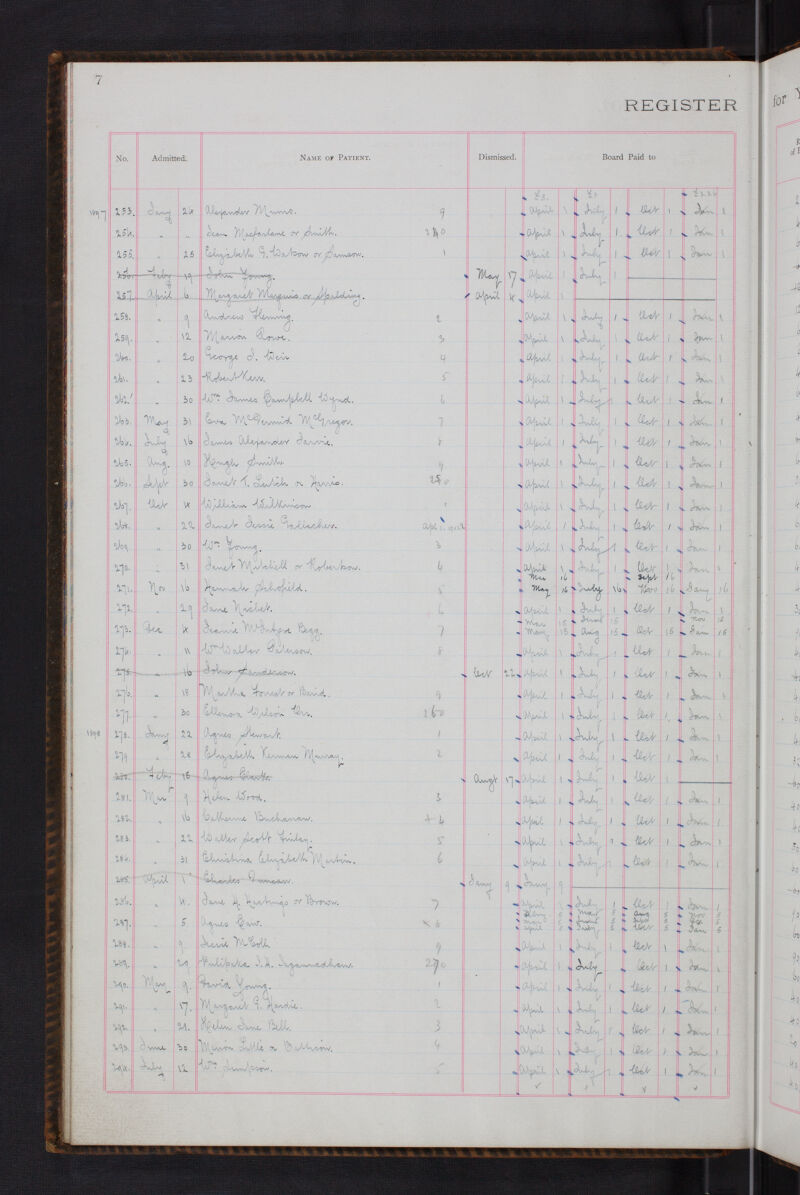 7
REGISTER
for
No. Admitted. NAME OF PATIENT. Dismissed. Board Paid to
£3. £3
1897 253. Jany 26 Alexander Munro. 9 April 1 July 1 Oct 1 Jan 1
254. " " Jean Macfarlane or Smith. 240 April 1 July 1 Oct 1 Jan 1
255. " 28 Elizabeth G. Watson or Samson. 1 April 1 July 1 Oct 1 Jan 1
256. Feby 19 John Young. May 17 April 1 July 1
257. April 6 Margaret or Spalding. April 4 April 1
258. " 9 Andrew Fleming. 2 April 1 July 1 Oct 1 Jan 1
259. " 12 Marion Rowe. 3 April 1 July 1 Oct 1 Jan 1
260. " 20 George J. Weir 4 April 1 July 1 Oct 1 Jan 1
261. " 23 Robert Kerr. 5 April 1 July 1 Oct 1 Jan 1
262. " 30 Wm James Campbell Wynd. 6 April 1 July 1 Oct 1 Jan 1
263. May 31 Eva McDermid McGregor. 7 April 1 July 1 Oct 1 Jan 1
264. July 16 James Alexander Jarvie. 8 April 1 July 1 Oct 1 Jan 1
265. Aug. 10 Hough Smith 9 April 1 July 1 Oct 1 Jan 1
266. Sept 30 Janet T. Leitch or Harris. 250 April 1 July 1 Oct 1 Jan 1
267. Oct 4 William Wilkinson 1 April 1 July 1 Oct 1 Jan 1
268. " 22 Janet Jessie Gallacher. April 1 July 1 Oct 1 Jan 1
269. " 30 Wm Young. 3 April 1 July 1 Oct 1 Jan 1
270. " 31 Janet Mitchell or Robertson. 4 April 1 July 1 Oct 1 Jan 1
Mar 16 Sept 16
271. Nov 16 Hannah Schofield. 5 May 16 July 16 Nov 16 Jany 16
272. " 29 Jane Naesbet. 6 April 1 July 1 Oct 1 Jan 1
Mar 15 June 15 Nov 15
273. Dec 4 Jeanie McIntyre Begg. 7 May 15 Aug 15 Oct 15 Jan 15
274. " 11 Wm Walter Paterson. 8 April 1 July 1 Oct 1 Jan 1
275. " 16 John Sanderson. Oct 22 April 1 July 1 Oct 1 Jan 1
276. " 18 Martha Forrest or Baird. 9 April 1 July 1 Oct 1 Jan 1
277. " 30 Ellenora Wilson 260 April 1 July 1 Oct 1 Jan 1
1898 278. Jany 22 Agnes Stewart. 1 April 1 July 1 Oct 1 Jan 1
279 " 28 Elizabeth Murray. 2 April 1 July 1 Oct 1 Jan 1
280. Feby 16 Agnes Clark. Augt 17 April 1 July 1 Oct 1
281. Mar 9 Helen Wood. 3 April 1 July 1 Oct 1 Jan 1
282. " 16 Catherine Buchanan. 4 April 1 July 1 Oct 1 Jan 1
283. " 22 Walter Scott Finlay. 5 April 1 July 1 Oct 1 Jan 1
284. " 31 Christina Elizabeth Martin. 6 April 1 July 1 Oct 1 Jan 1
285. April 1 Charles Duncan. Jany 9 Jany 9
286. " 4. Jane H. Hastings or Brown. 7 April 1 July 1 Oct 1 Jan 1
287. " 5 Agnes Gaw. April 5 July 5 Oct 5 Jan 5
288. " 9 Jessie McColl 9 April 1 July 1 Oct 1 Jan 1
289. " 29 J. A. 270 April 1 July 1 Oct 1 Jan 1
290. May 9. David Young. 1 April 1 July 1 Oct 1 Jan 1
291. " 17. Margaret G. Hardie. 2 April 1 July 1 Oct 1 Jan 1
292. " 21. Helen Jane Bell. 3 April 1 July 1 Oct 1 Jan 1
293. June 30 Marion Little or 4 April 1 July 1 Oct 1 Jan 1
294. July 12 Wm Simpson. 5 April 1 July 1 Oct 1 Jan 1